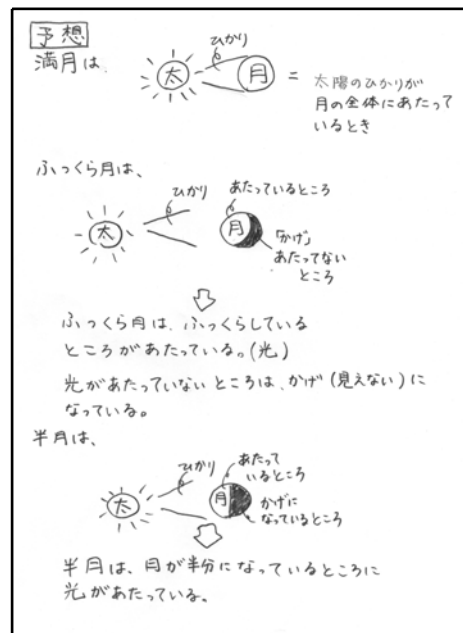 予想
満月は
ひかり
太
月
=
太陽のひかりが
月の全体にあたって
いるとき
ふっくら月は、
ひかり
あたっているところ
太
月
「かげ」
あたってない
ところ
ふっくら月は、ふっくらしている
ところがあたっている。(光)
光があたっていないところは、かげ(見えない)に
なっている。
半月は、
ひかり
あたって
いるところ
太
月
かげに
なっているところ
半月は、月が半分になっているところに
光があたっている。